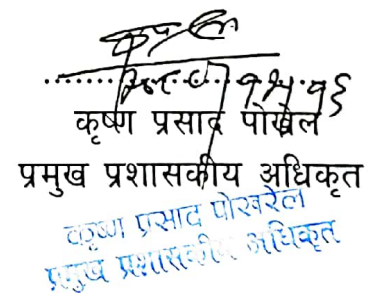 कृष्ण प्रसाद पोखरेल
प्रमुख प्रशासकीय अधिकृत
कृष्ण प्रसाद पोखरेल
प्रमुख प्रशासकीय अधिकृत